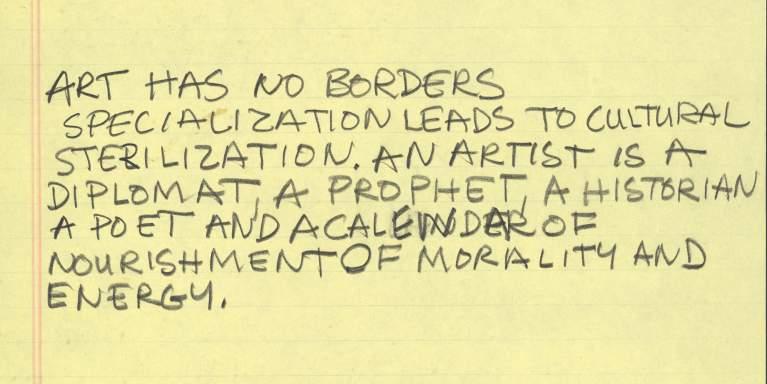 ART HAS NO BORDERS
SPECIALIZATION LEADS TO CULTURAL
STERILIZATION. AN ARTIST IS A
DIPLOMAT, A PROPHET, A HISTORIAN
A POET AND A CALENDAR OF
NOURISHMENT OF MORALITY AND
ENERGY.